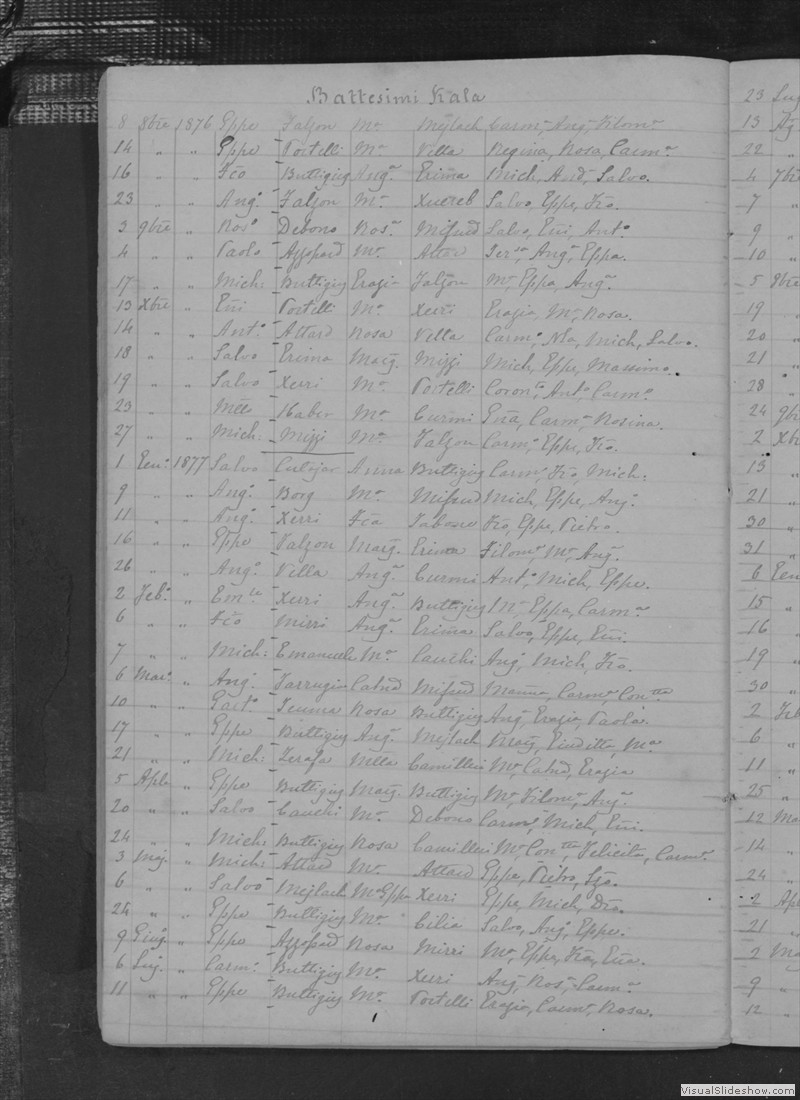 Battesimi Kala
8 8bre 1876 Eppe Falzon Ma Mejlach Carm, Ang, Filoma
14 " " Eppe Portelli Ma Villa Regina, Rosa, Carma
16 " " Fco Buttigieg Anga Erima Mich, And, Salvo.
23 " " Ango Falzon Ma Xuereb Salvo, Eppe, Fco.
3 9bre " Roso Debono Rosa Mifsud Salvo, Eni, Anto
4 " " Paolo Azzopard Ma Attard Teresa, Anga, Eppa.
17 " " Mich: Buttigieg Erazia Falzon Ma, Eppa, Anga
13 Xbre " Eni Portelli Ma Xerri Erazia, Ma, Rosa.
14 " " Anto Attard Rosa Villa Carmo, Nla, Mich, Salvo.
18 " " Salvo Erima Marg. Mizzi Mich, Eppe, Massimo.
19 " " Salvo Xerri Ma Portelli Anto, Carmo
23 " " Haber Ma Curmi Carma, Rosina.
27 " " Mich: Mizzi Ma Falzon Carmo, Eppe, Fco.
1 Een: 1877 Salvo Culejar Anna Buttigieg Carmo, Fco, Mich.
9 " " Ango Borg Ma Mifsud Mich, Eppe, Ang.
11 " " Ango Xerri Fca Tabone Fco, Eppe, Pietro.
16 " " Eppe Falzon Marg. Erima Filoma, Ma, Ang.
26 " " Ango Villa Anga Curmi Anto, Mich, Eppe.
2 Feb: " Emle Xerri Anga Buttigieg Ma, Eppa, Carma
6 " " Fco Mizzi Anga Erima Salvo, Eppe, Eni.
7 " " Mich: Emanuele Ma Cauchi Ang, Mich, Fco.
6 Mar: " Ang. Farrugia Catnd Mifsud Carma, Contta
10 " " Gaeto Rosa Buttigieg Ang, Erazia, Paola.
17 " " Eppe Buttigieg Anga Mejlach Marg, Eiuditta, Ma
21 " " Mich: Zerafa Nella Camilleri Ma, Catnd, Erazia
5 Apl " Eppe Buttigieg Marg. Buttigieg Ma, Filoma, Anga
20 " " Salvo Cauchi Ma Debono Carmo, Mich, Eni.
24 " " Mich: Buttigieg Rosa Camilleri Ma, Contta, Felicita, Carma
3 Mag. " Mich: Attard Ma Attard Eppe, Pietro, Fco.
6 " " Salvo Mejlach Ma Eppa Xerri Eppe, Mich,
24 " " Eppa Buttigieg Ma Cilia Salvo, Ang, Eppe.
9 Giug. " Eppe Azzopard Rosa Mizzi Ma, Eppe, Fca, Ena.
6 Lug. " Carmo Buttigieg Ma Xerri Ang, Rosa, Carma
11 " " Eppe Buttigieg Ma Portelli Erazia, Carma, Rosa.
23 Lug
13 Ag
22 "
4 7bre
7 "
9 "
10 "
5 8bre
19 "
20 "
21 "
28 "
24 9bre
2 Xbre
13 "
21 "
30 "
31 "
6 Een
15 "
16 "
19 "
30 "
2 Feb
6 "
11 "
25 "
12 Ma
14 "
24 "
2 Apl
21 "
2 Ma
9 "
12 "
VisualSlideshow.com